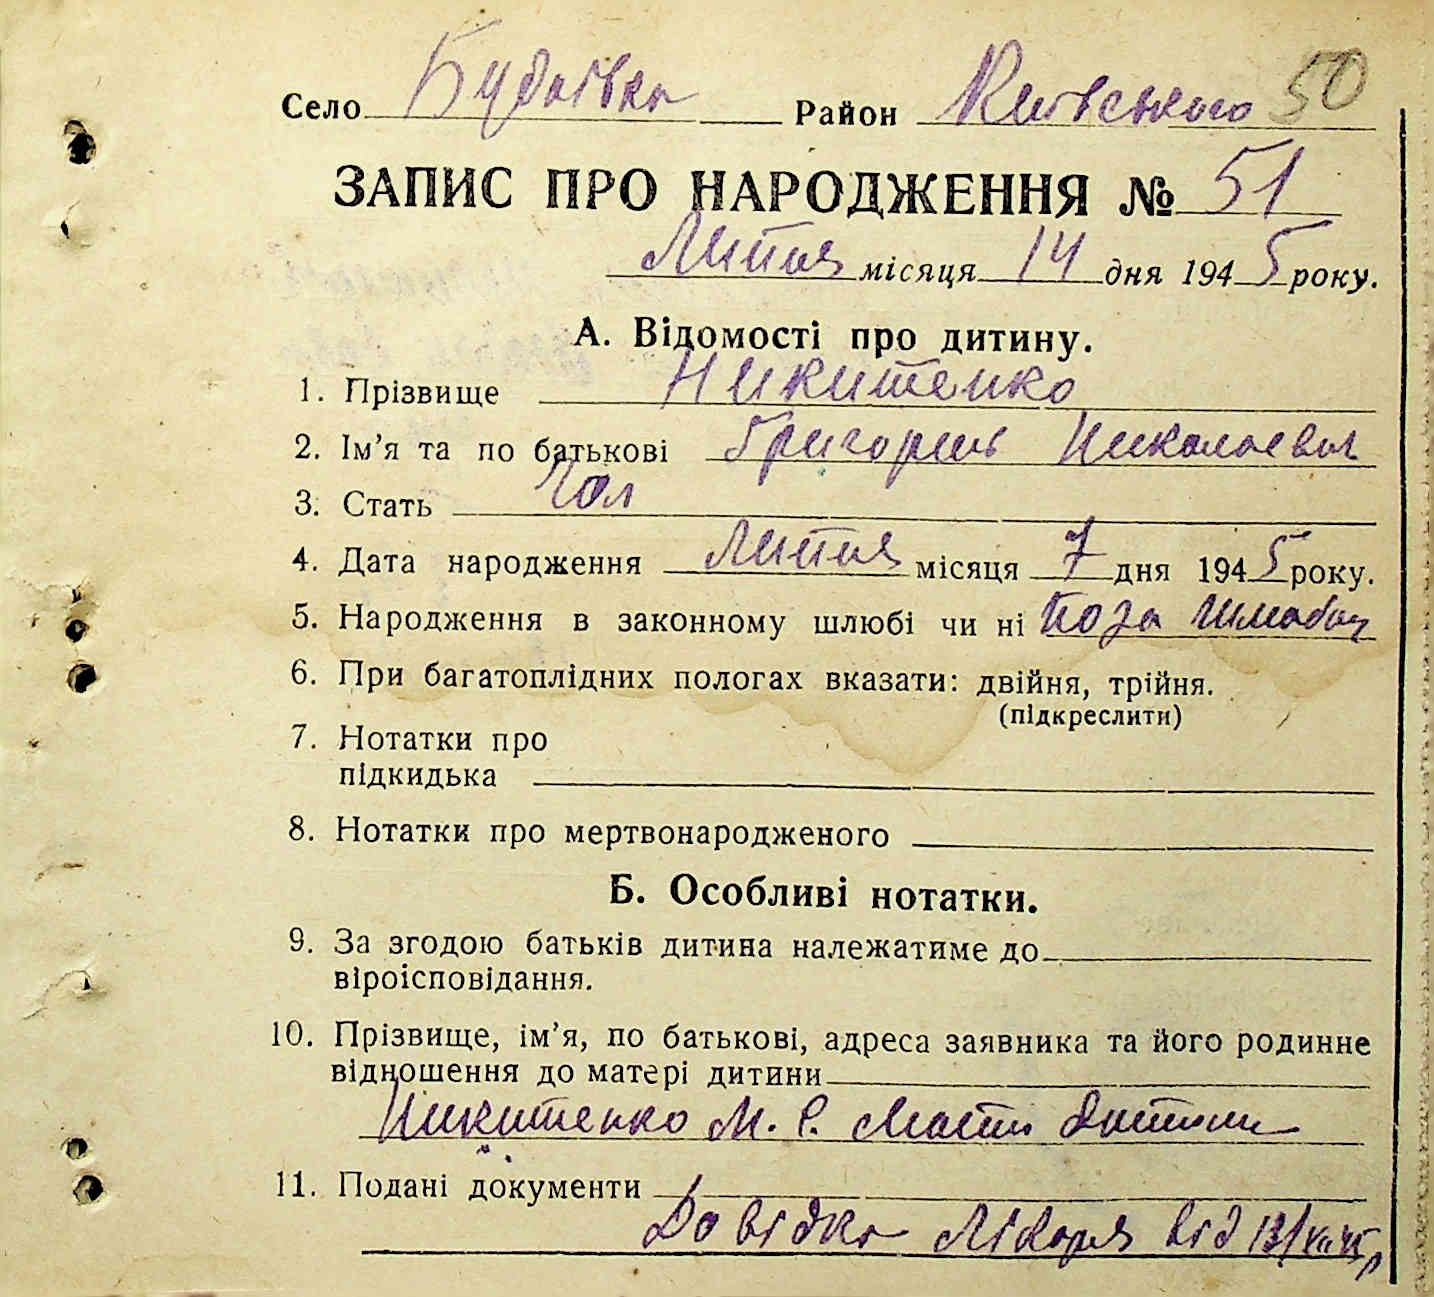 Село Будаївка Район Київського 50
ЗАПИС ПРО НАРОДЖЕННЯ № 51
Липня місяця 14 дня 1945 року.
А. Відомості про дитину.
1. Прізвище Никитенко
2. Ім'я та по батькові Григорий Николаевич
3. Стать Чол
4. Дата народження Липня місяця 7 дня 1945 року.
5. Народження в законному шлюбі чи ні Поза шлюбом
6. При багатоплідних пологах вказати: двійня, трійня.
(підкреслити)
7. Нотатки про
підкидька
8. Нотатки про мертвонародженого
Б. Особливі нотатки.
9. За згодою батьків дитина належатиме до
віроісповідання.
10. Прізвище, ім'я, по батькові, адреса заявника та його родинне
відношення до матері дитини
Никитенко М. Р. Мати дитини
11. Подані документи
Довідка Лікаря від 13/VII 45 р